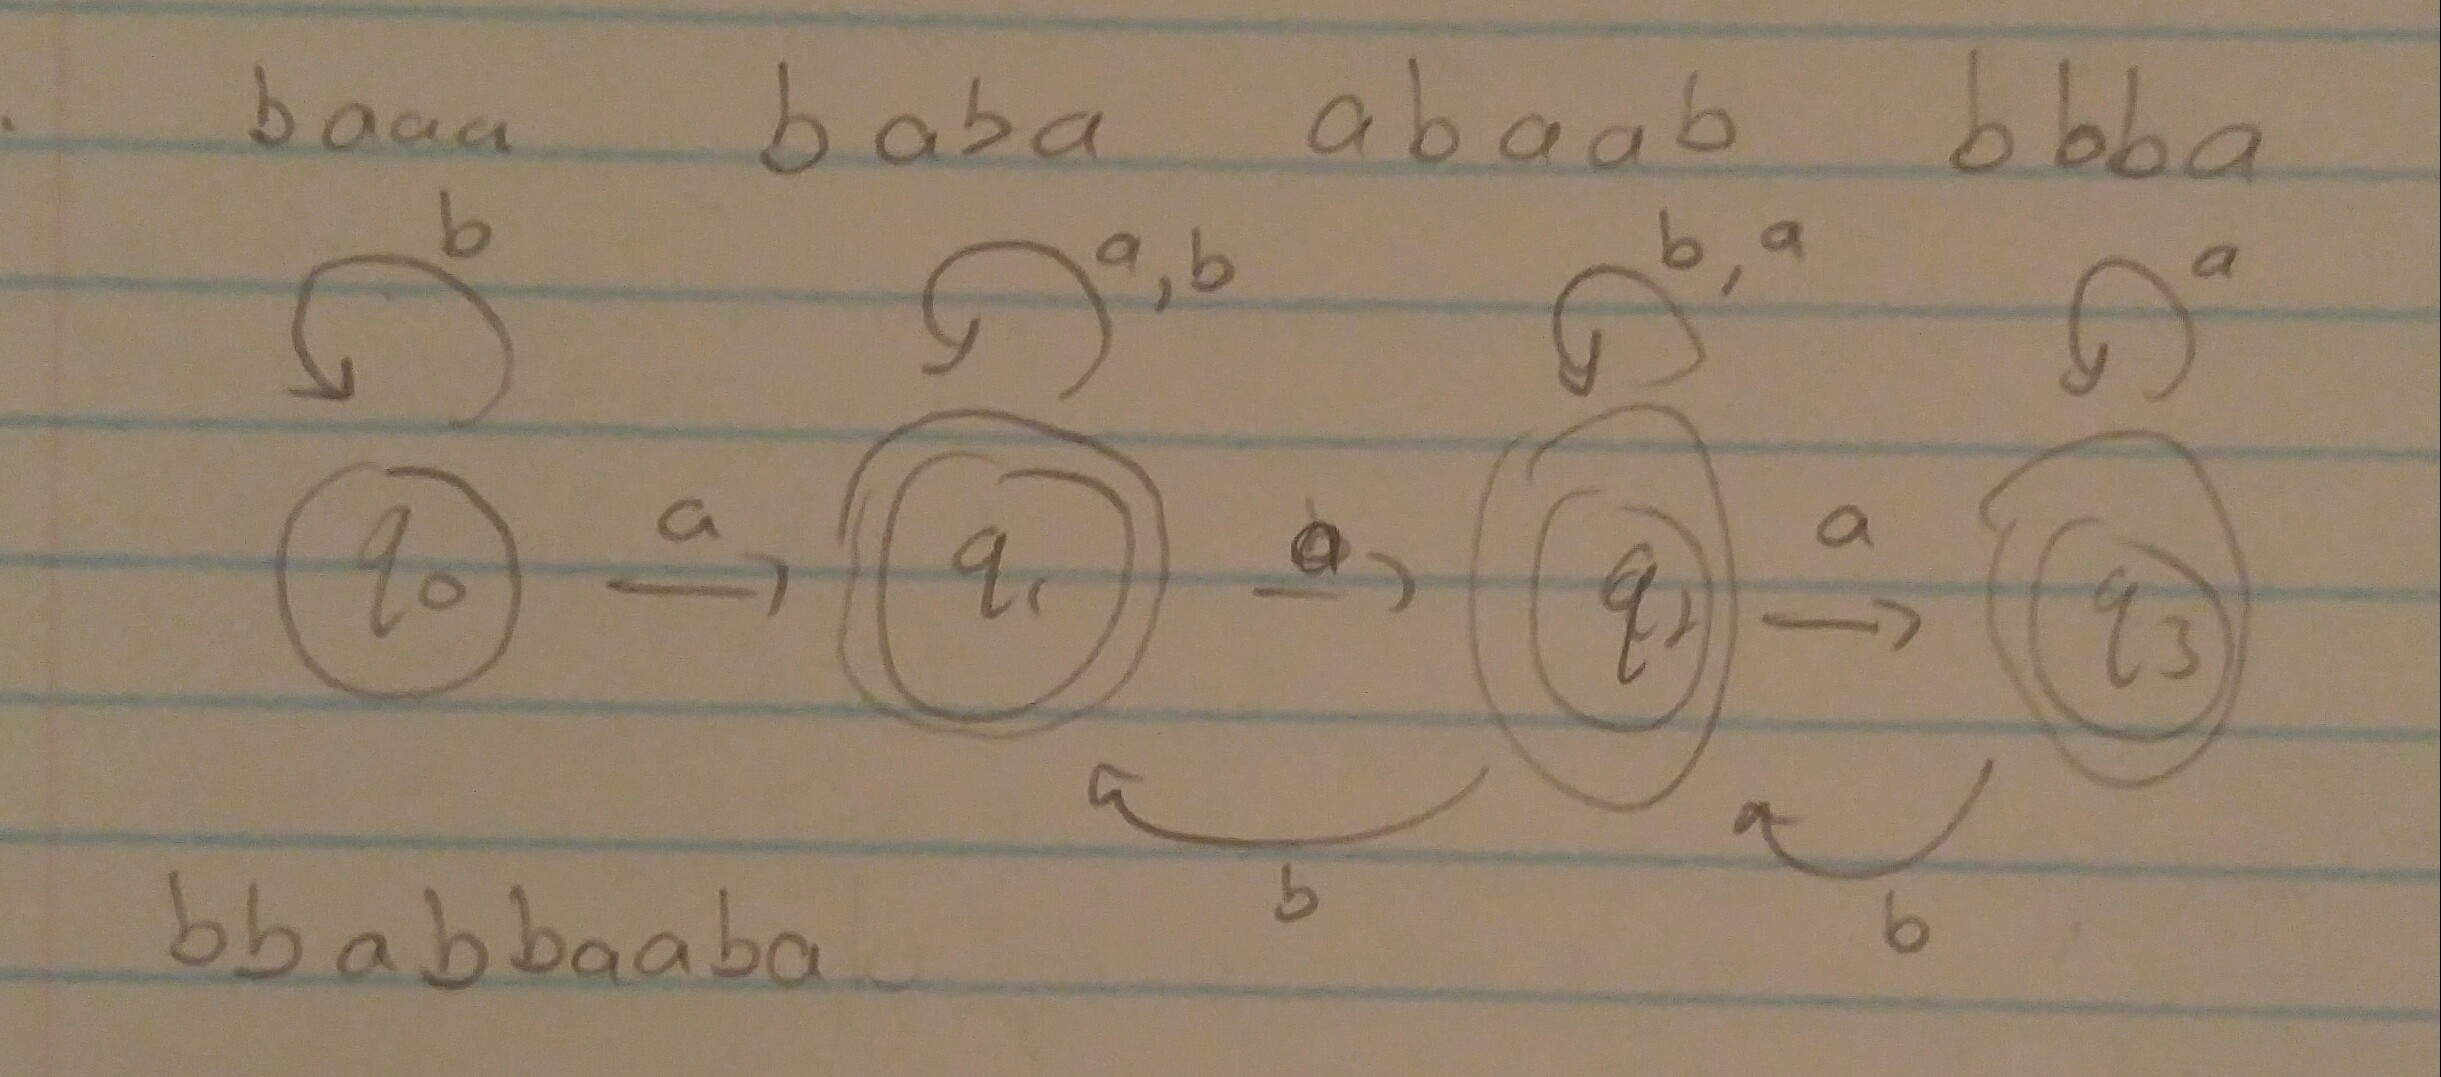 baaa baba abaab bbba
b a,b b,a a
q0 a q1 a q2 a q3
b b
bbabbaaba